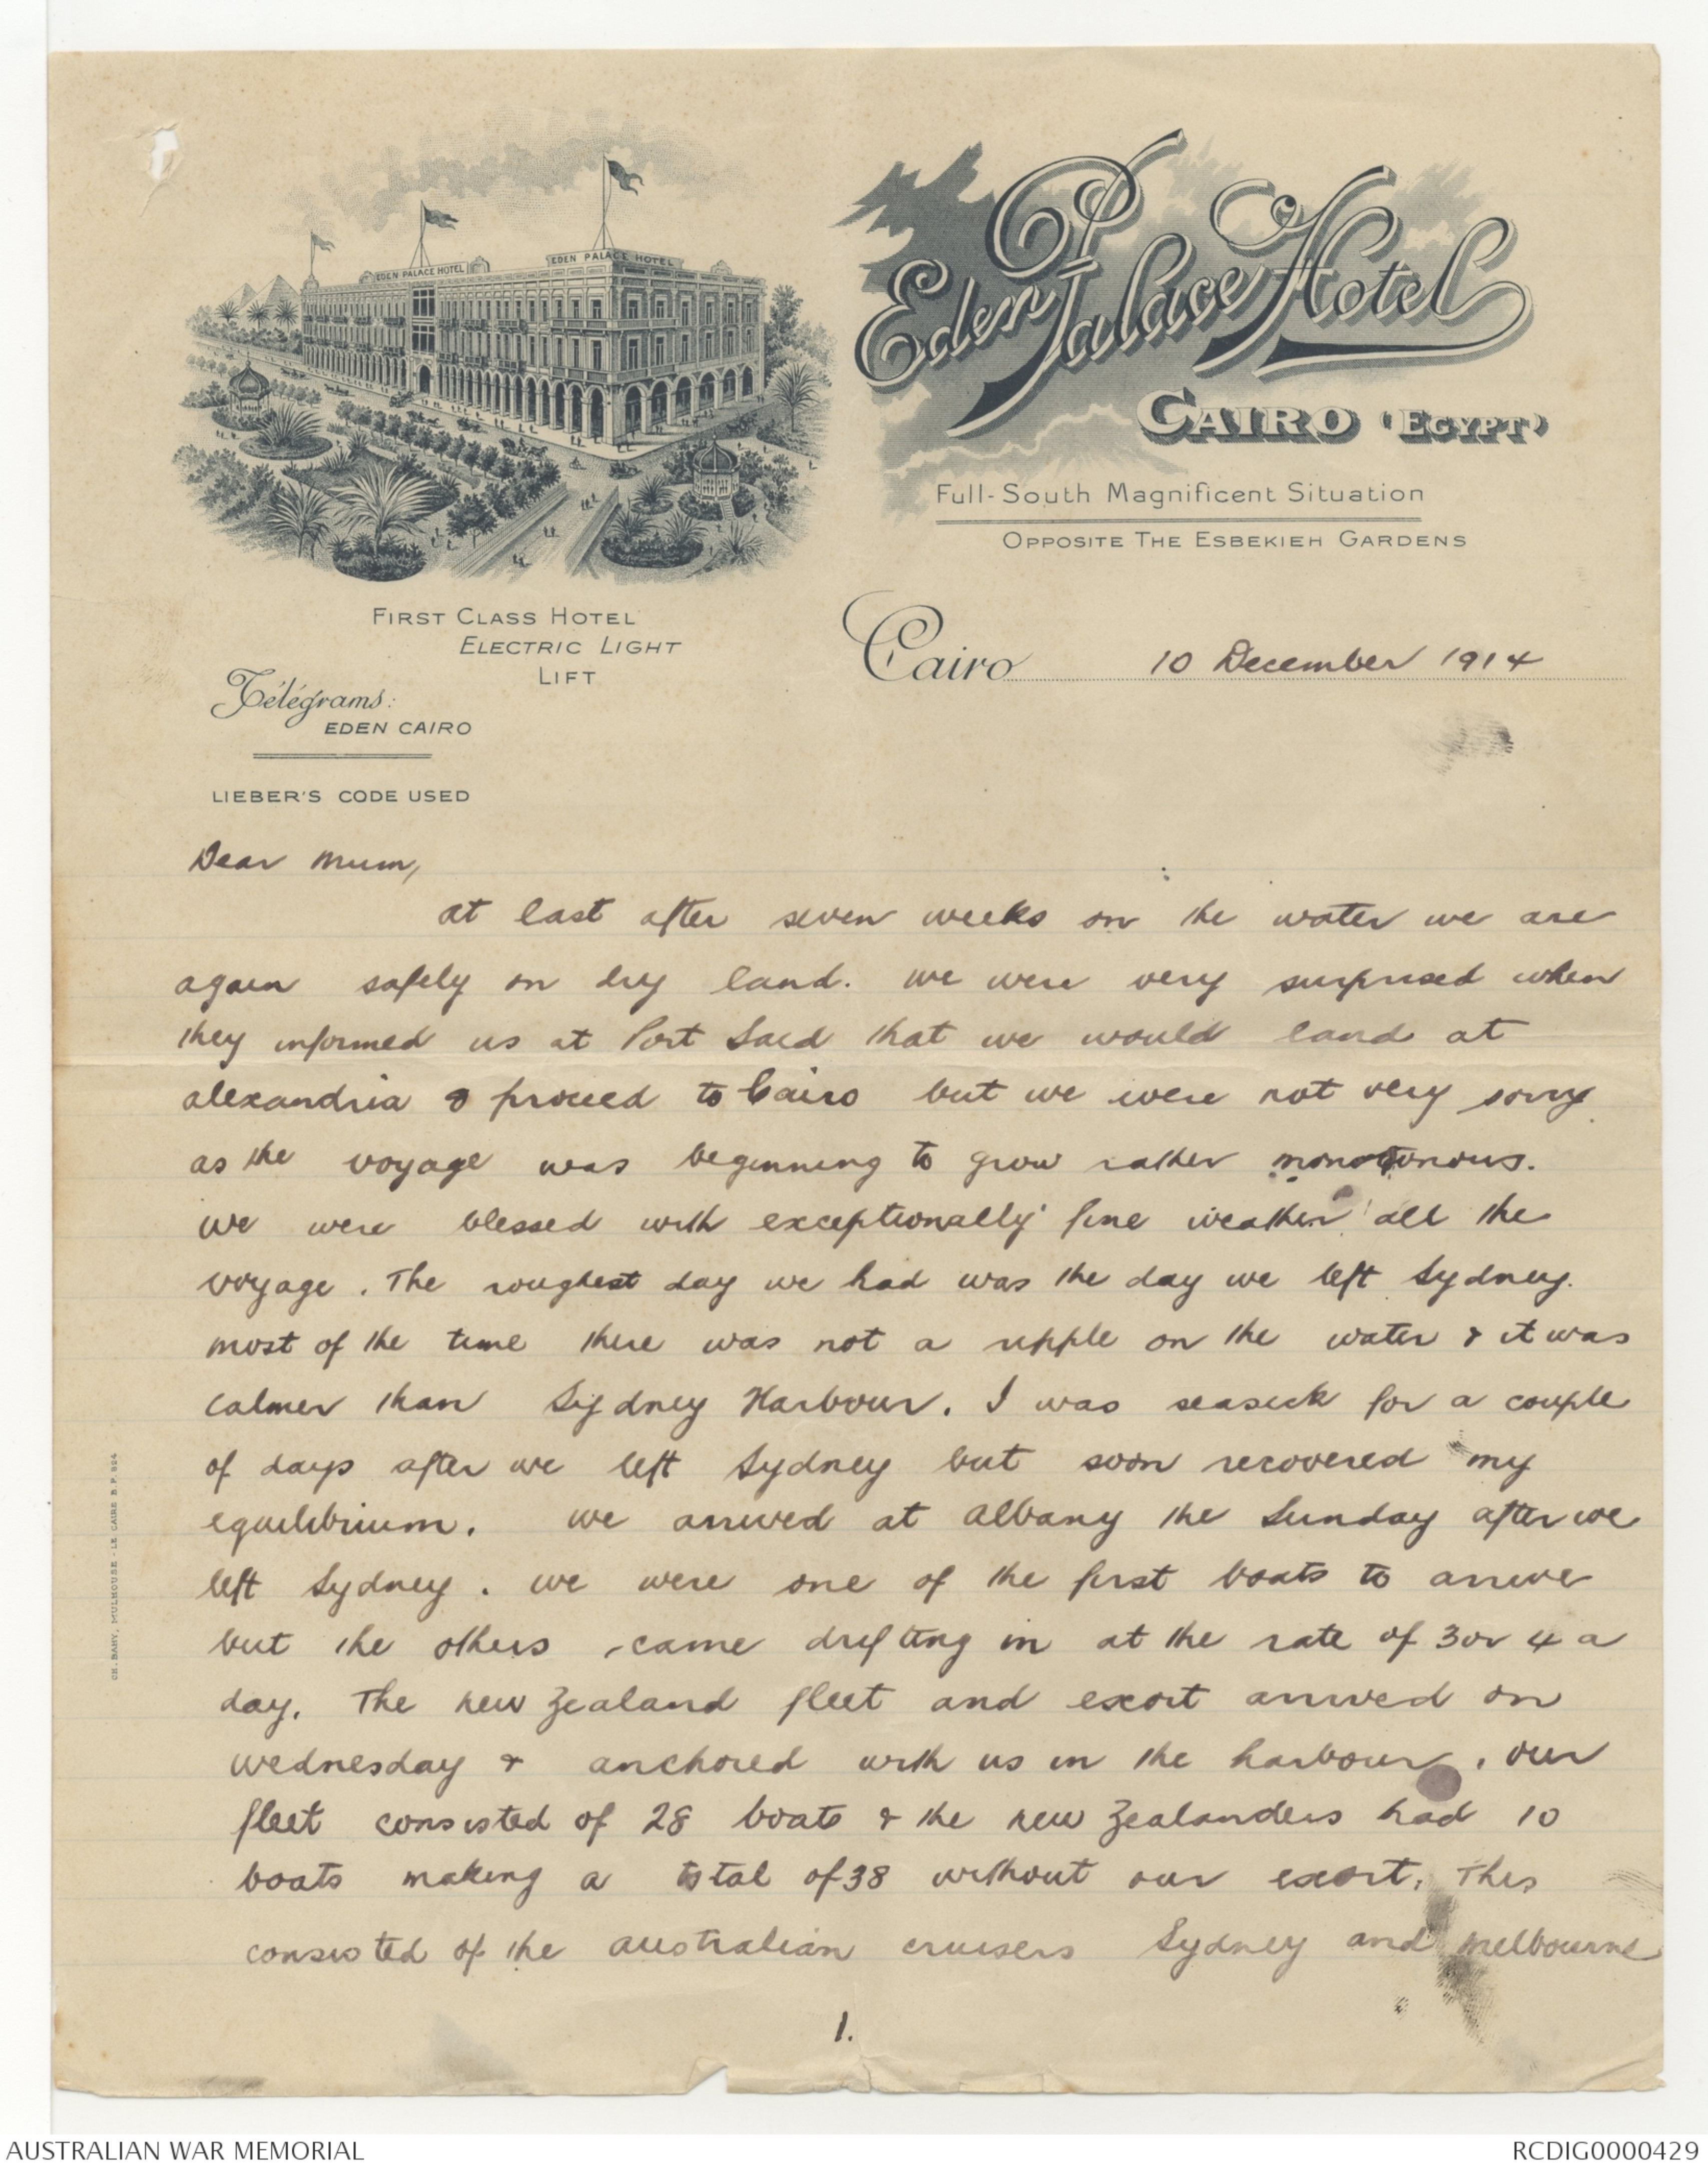 EDEN PALACE HOTEL
EDEN PALACE HOTEL
Eden Palace Hotel
CAIRO (EGYPT)
Full-South Magnificent Situation
OPPOSITE THE ESBEKIEH GARDENS
FIRST CLASS HOTEL
ELECTRIC LIGHT
LIFT
Télégrams:
EDEN CAIRO
LIEBER'S CODE USED
Cairo 10 December 1914
Dear Mum,
At last after seven weeks on the water we are
again safely on dry land. We were very surprised when
they informed us at Port Said that we would land at
Alexandria & proceed to Cairo but we were not very sorry
as the voyage was beginning to grow rather monotonous.
We were blessed with exceptionally fine weather all the
voyage. The roughest day we had was the day we left Sydney.
Most of the time there was not a ripple on the water & it was
calmer than Sydney Harbour. I was seasick for a couple
of days after we left Sydney but soon recovered my
equilibrium. We arrived at Albany the Sunday after we
left Sydney. We were one of the first boats to arrive
but the others came drifting in at the rate of 3 or 4 a
day. The New Zealand fleet and excort arrived on
Wednesday & anchored with us in the harbour. Our
fleet consisted of 28 boats & the New Zealanders had 10
boats making a total of 38 without our excort. This
consisted of the Australian cruisers Sydney and Melbourne
1.
CH. BAHY, MULHOUSE - LE CAIRE B.P. 824
AUSTRALIAN WAR MEMORIAL
RCDIG0000429